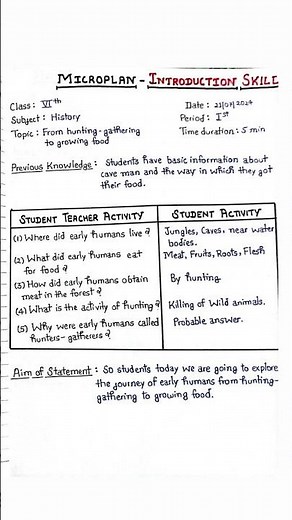 MICROPLAN - INTRODUCTION SKILL
Class : VIth
Date : 21/07/2024
Subject : History
Period : Ist
Topic : From hunting-gathering
to growing food
Time duration : 5 min
Previous Knowledge : Students have basic information about
cave man and the way in which they got
their food.
STUDENT TEACHER ACTIVITY
STUDENT ACTIVITY
(1) Where did early humans live ?
Jungles, Caves, near water
bodies.
(2) What did early humans eat
for food ?
Meat, Fruits, Roots, Flesh
(3) How did early humans obtain
meat in the forest ?
By hunting.
(4) What is the activity of hunting ?
Killing of Wild animals.
(5) Why were early humans called
hunters-gatherers ?
Probable answer.
Aim of Statement : So students today we are going to explore
the journey of early humans from hunting-
gathering to growing food.